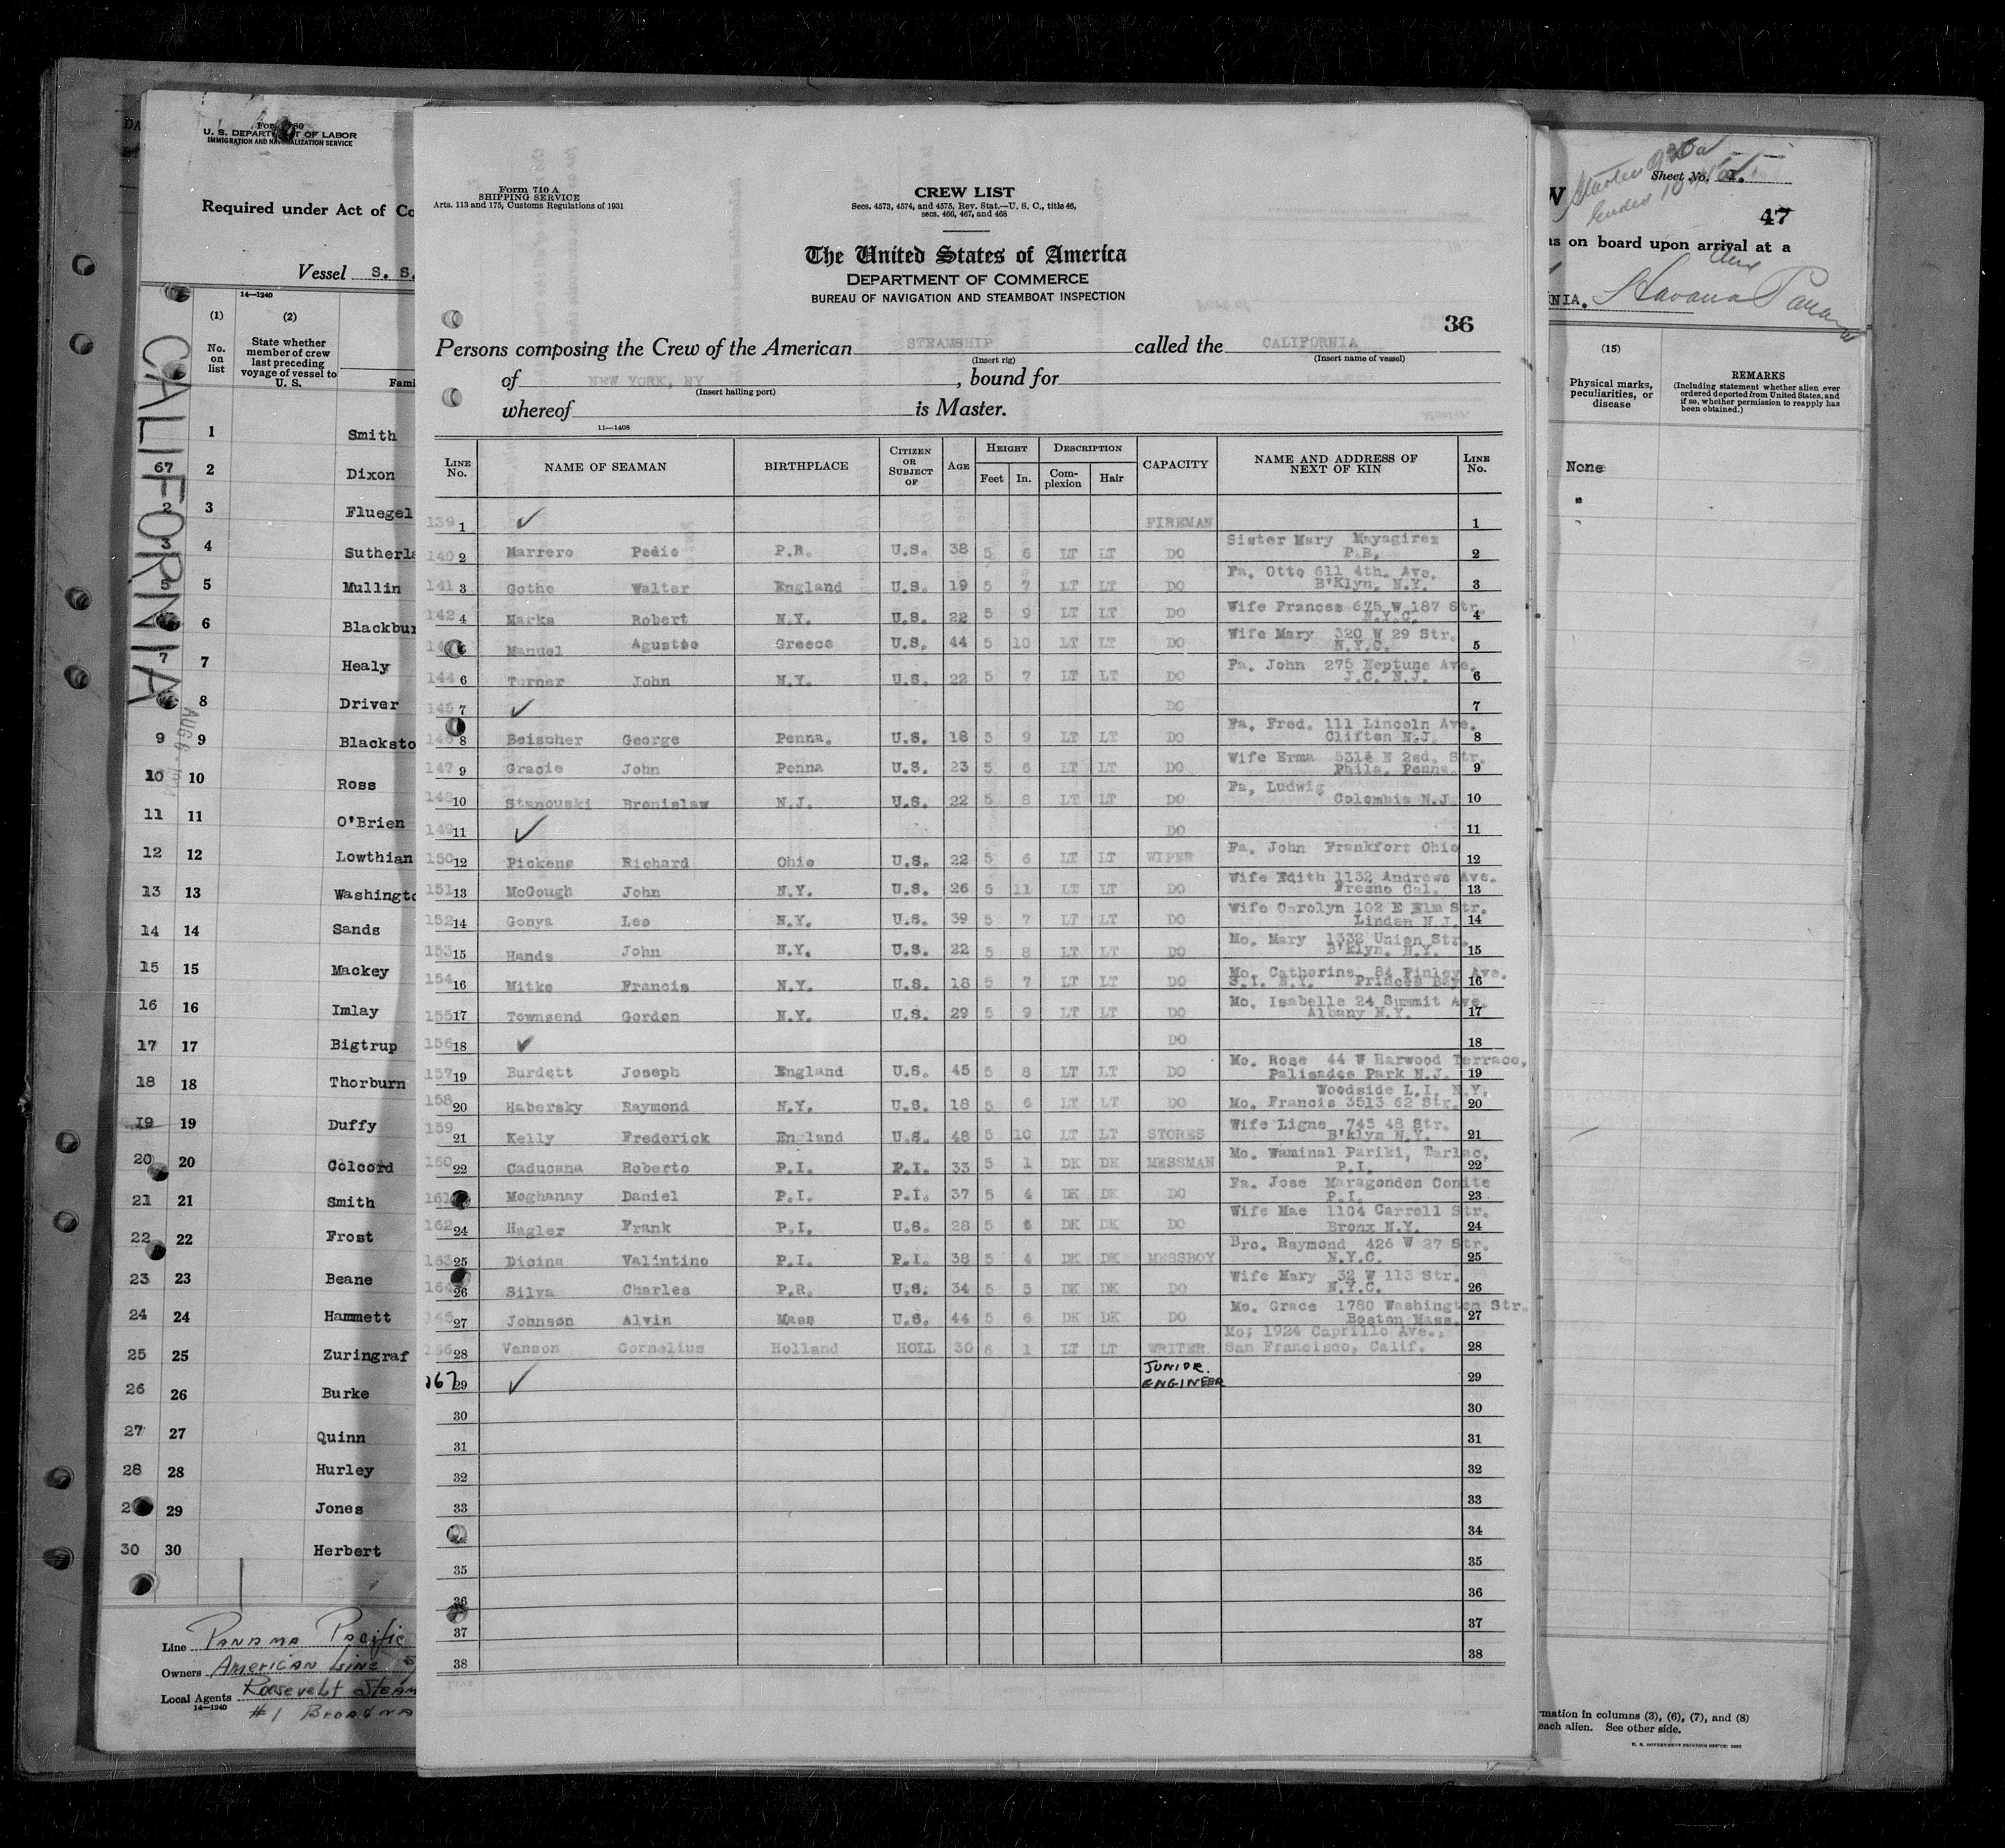 Form 680
U. S. DEPARTMENT OF LABOR
IMMIGRATION AND NATURALIZATION SERVICE
Required under Act of Co
Vessel S. S.
14—1240
(1) (2)
No. on list
State whether member of crew last preceding voyage of vessel to U. S.
Fami
CALIFORNIA
1 Smith
67 2 Dixon
2 3 Fluegel
3 4 Sutherla
5 5 Mullin
6 Blackbur
7 7 Healy
8 Driver
9 9 Blacksto
10 10 Ross
11 11 O'Brien
12 12 Lowthian
13 13 Washingto
14 14 Sands
15 15 Mackey
16 16 Imlay
17 17 Bigtrup
18 18 Thorburn
19 19 Duffy
20 20 Colcord
21 21 Smith
22 22 Frost
23 23 Beane
24 24 Hammett
25 25 Zuringraf
26 26 Burke
27 27 Quinn
28 28 Hurley
2 29 Jones
30 30 Herbert
Line Panama Pacific
Owners American Line
Local Agents Roosevelt Steam
14—1240
#1 Broadwa
Form 710 A
SHIPPING SERVICE
Arts. 113 and 175, Customs Regulations of 1931
CREW LIST
Secs. 4573, 4574, and 4575, Rev. Stat.—U. S. C., title 46,
secs. 466, 467, and 468
The United States of America
DEPARTMENT OF COMMERCE
BUREAU OF NAVIGATION AND STEAMBOAT INSPECTION
36
Persons composing the Crew of the American STEAMSHIP called the CALIFORNIA
(Insert rig) (Insert name of vessel)
of NEW YORK, NY, bound for
(Insert hailing port)
whereof is Master.
11—1408
LINE No. NAME OF SEAMAN BIRTHPLACE CITIZEN OR SUBJECT OF AGE HEIGHT Feet In. DESCRIPTION Complexion Hair CAPACITY NAME AND ADDRESS OF NEXT OF KIN LINE No.
139 1 ✓ FIREMAN 1
140 2 Marrero Pedio P.R. U.S. 38 5 6 LT LT DO Sister Mary Mayagirez P.R. 2
141 3 Gothe Walter England U.S. 19 5 7 LT LT DO Fa. Otto 611 4th. Ave. B'Klyn. N.Y. 3
142 4 Marks Robert N.Y. U.S. 22 5 9 LT LT DO Wife Frances 675 W 187 Str. N.Y.C. 4
Manuel Agustee Greece U.S. 44 5 10 LT LT DO Wife Mary 320 W 29 Str. N.Y.C. 5
144 6 Turner John N.Y. U.S. 22 5 7 LT LT DO Fa. John 275 Neptune Ave. J.C. N.J. 6
145 7 ✓ DO 7
146 8 Beischer George Penna. U.S. 18 5 9 LT LT DO Fa. Fred. 111 Lincoln Ave. Clifton N.J. 8
147 9 Gracie John Penna U.S. 23 5 6 LT LT DO Wife Erma 5314 N 2sd. Str. Phila. Penna. 9
148 10 Stanouski Bronislaw N.J. U.S. 22 5 8 LT LT DO Fa, Ludwig Colombia N.J 10
149 11 ✓ DO 11
150 12 Pickens Richard Ohio U.S. 22 5 6 LT LT WIPER Fa. John Frankfort Ohio 12
151 13 McGough John N.Y. U.S. 26 5 11 LT LT DO Wife Edith 1132 Andrews Ave. Fresno Cal. 13
152 14 Gonya Leo N.Y. U.S. 39 5 7 LT LT DO Wife Carolyn 102 E Elm Str. Linden N.J. 14
153 15 Hands John N.Y. U.S. 22 5 8 LT LT DO Mo. Mary 1332 Union Str. B'klyn. N.Y. 15
154 16 Mitke Francis N.Y. U.S. 18 5 7 LT LT DO Mo. Catherine 84 Finley Ave. S.I. N.Y. Princes Bay 16
155 17 Townsend Gordon N.Y. U.S. 29 5 9 LT LT DO Mo. Isabelle 24 Summit Ave. Albany N.Y. 17
156 18 ✓ DO 18
157 19 Burdett Joseph England U.S. 45 5 8 LT LT DO Mo. Rose 44 W Harwood Terrace, Palisades Park N.J. 19
158 20 Habersky Raymond N.Y. U.S. 18 5 6 LT LT DO Woodside L.I. N.Y. Mo. Francis 3513 62 Str. 20
159 21 Kelly Frederick England U.S. 48 5 10 LT LT STORES Wife Ligne 745 48 Str. B'klyn N.Y. 21
160 22 Caducana Roberto P.I. P.I. 33 5 1 DK DK MESSMAN Mo. Waminal Pariki, Tarlac, P.I. 22
161 Moghanay Daniel P.I. P.I. 37 5 4 DK DK DO Fa. Jose Maragondon Conite P.I. 23
162 24 Hagler Frank P.I. U.S. 28 5 6 DK DK DO Wife Mae 1104 Carroll Str. Bronx N.Y. 24
163 25 Dicina Valintino P.I. P.I. 38 5 4 DK DK MESSBOY Bro. Raymond 426 W 27 Str. N.Y.C. 25
164 26 Silva Charles P.R. U.S. 34 5 5 DK DK DO Wife Mary 32 W 113 Str. N.Y.C. 26
165 27 Johnson Alvin Mass U.S. 44 5 6 DK DK DO Mo. Grace 1780 Washington Str. Boston Mass. 27
166 28 Vanson Cornelius Holland HOLL 30 6 1 LT LT WRITER Mo; 1924 Caprillo Ave., San Francisco, Calif. 28
167 29 ✓ JUNIOR. ENGINEER 29
30 30
31 31
32 32
33 33
34
35 35
36 36
37 37
38 38
Started 930a
Ended 10
Sheet No. 1.
47
ns on board upon arrival at a
NIA. Havana and Panama
(15)
Physical marks, peculiarities, or disease
REMARKS
(Including statement whether alien ever ordered deported from United States, and if so, whether permission to reapply has been obtained.)
None
"
rmation in columns (3), (6), (7), and (8)
each alien. See other side.
U. S. GOVERNMENT PRINTING OFFICE